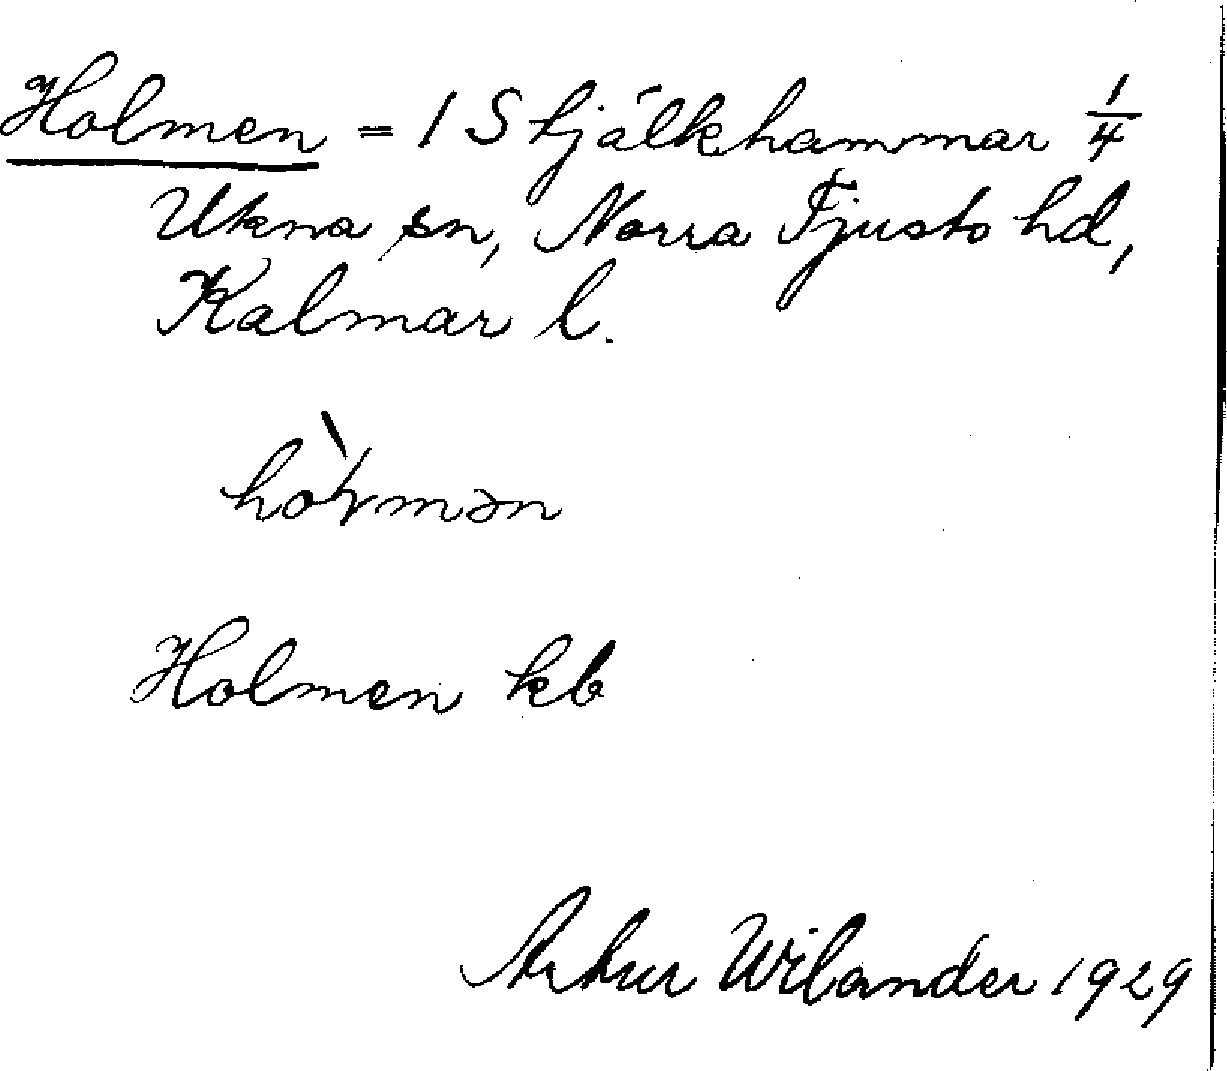 Holmen = 1 Stjälkhammar 1/4
Ukna sn, Norra Tjusts hd,
Kalmar l.
Holmen kb
Artur Wilander 1929